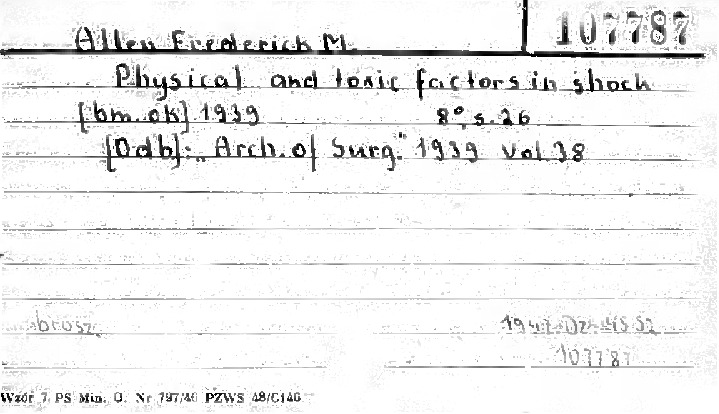 Allen Frederick M.
107787
Physical and toxic factors in shock
[bm. ok] 1939 8°, s. 26
[Odb]: „Arch. of Surg." 1939 Vol 38
brosz.
107787
Wzór 7 PS Min. O. Nr 797/46 PZWS 48/C146